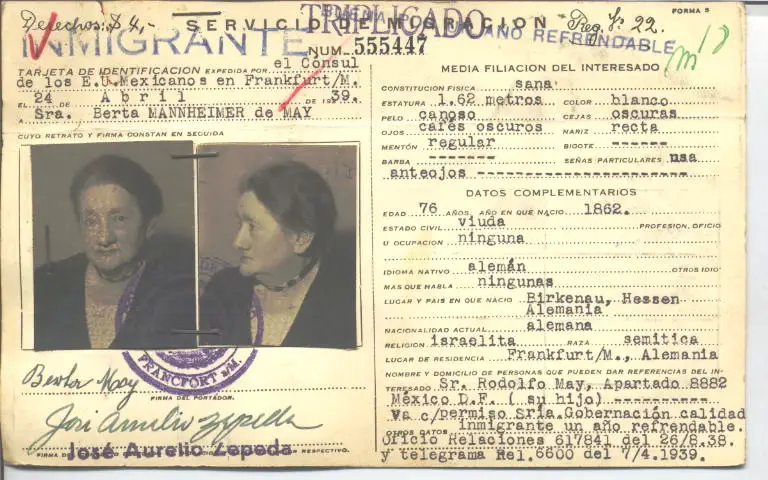 Derechos: $ 4,- SERVICIO DE MIGRACION Reg. Nº 22. FORMA 5
TRIPLICADO
INMIGRANTE UN AÑO REFRENDABLE
NUM. 555447
TARJETA DE IDENTIFICACION EXPEDIDA POR el Cónsul
de los E.U.Mexicanos en Frankfurt/M.
EL 24 DE Abril DE 1939.
A Sra. Berta MANNHEIMER de MAY
CUYO RETRATO Y FIRMA CONSTAN EN SEGUIDA
FRANCFORT s/M.
Bertha May
FIRMA DEL PORTADOR.
José Aurelio Zepeda
José Aurelio Zepeda
FIRMA RESPECTIVO.
MEDIA FILIACION DEL INTERESADO
CONSTITUCION FISICA sana
ESTATURA 1.62 metros COLOR blanco
PELO canoso CEJAS oscuras
OJOS cafés oscuros NARIZ recta
MENTÓN regular BIGOTE ------
BARBA ------- SEÑAS PARTICULARES usa
anteojos ----------------------
DATOS COMPLEMENTARIOS
EDAD 76 AÑOS. AÑO EN QUE NACIO 1862.
ESTADO CIVIL viuda PROFESION, OFICIO
U OCUPACION ninguna
IDIOMA NATIVO alemán OTROS IDIO-
MAS QUE HABLA ningunas
LUGAR Y PAIS EN QUE NACIO Birkenau, Hessen
Alemania
NACIONALIDAD ACTUAL alemana
RELIGION israelita RAZA semitica
LUGAR DE RESIDENCIA Frankfurt/M., Alemania
NOMBRE Y DOMICILIO DE PERSONAS QUE PUEDEN DAR REFERENCIAS DEL IN-
TERESADO Sr. Rodolfo May, Apartado 8882
México D.F. ( su hijo) ----------
Va c/permiso Sría.Gobernación calidad
OTROS DATOS inmigrante un año refrendable.
Oficio Relaciones 617841 del 26/8.38.
y telegrama Rel.6600 del 7/4.1939.